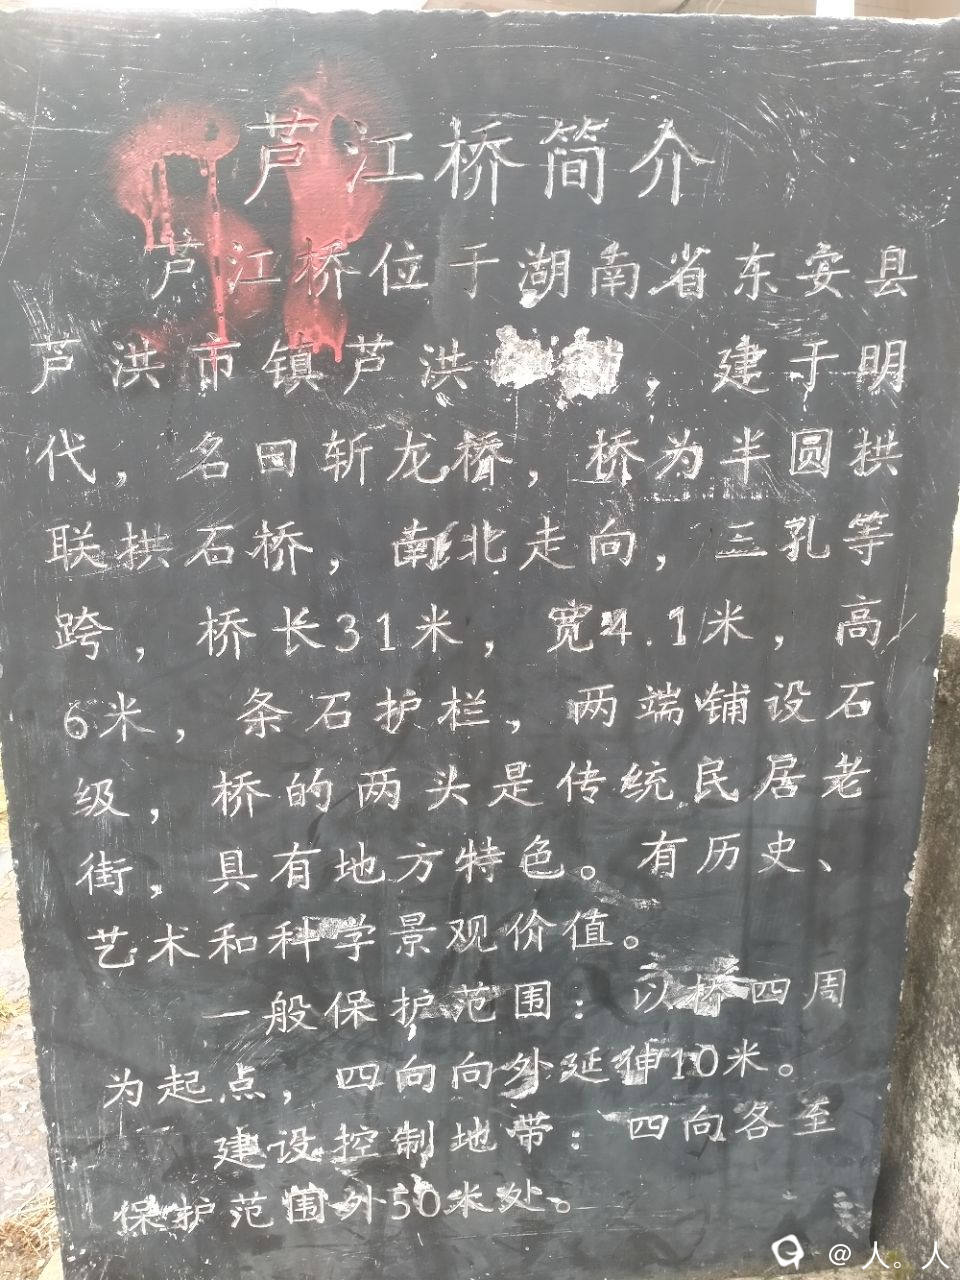 芦江桥简介
芦江桥位于湖南省东安县
芦洪市镇芦洪，建于明
代，名曰斩龙桥，桥为半圆拱
联拱石桥，南北走向，三孔等
跨，桥长31米，宽4.1米，高
6米，条石护栏，两端铺设石
级，桥的两头是传统民居老
街，具有地方特色。有历史、
艺术和科学景观价值。
一般保护范围：以桥四周
为起点，四向向外延伸10米。
建设控制地带：四向各至
保护范围外50米处。
@人。人